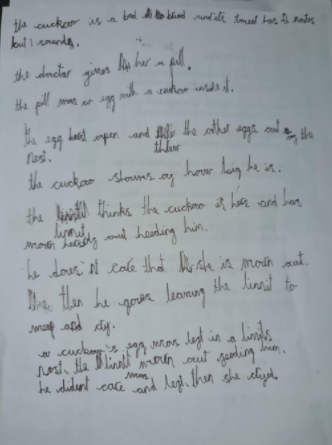 the cuckoo is a bad blind
but 1 sound.
the doctor gives her a pill.
the pill was an egg with a cuckoo inside it.
the egg open and the other eggs out the
threw
nest.
the cuckoo shows of how big he is.
the thinks the cuckoo is hers and has
linnit
worn herself out feeding him.
he does'nt care that she is worn out.
then he goes leaving the linnit to
and cry.
a cuckoo's egg was left in a linnits
nest. the linnit worn out feeding him.
he dident care and left. then she